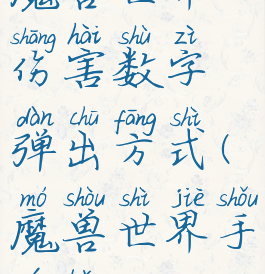 shāng hài shù zì
伤害数字
dàn chū fāng shì
弹出方式(
mó shòu shì jiè shǒu
魔兽世界手